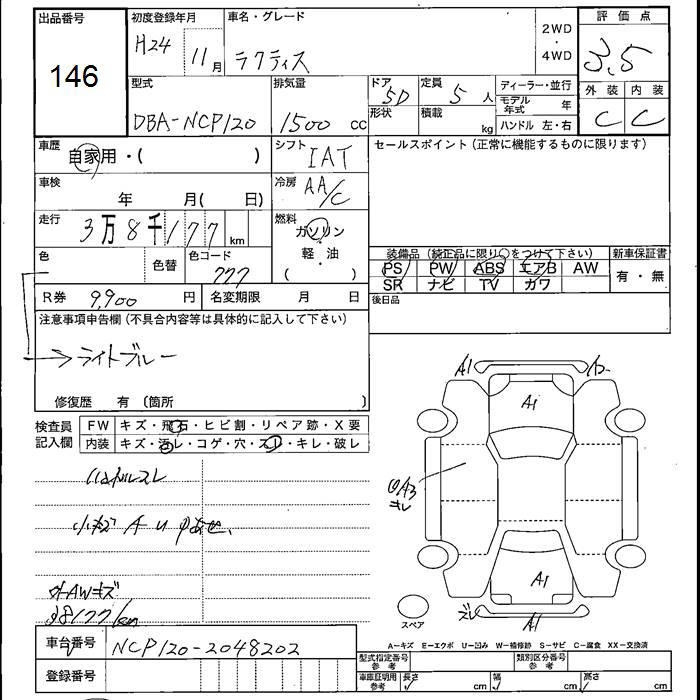 出品番号
146
初度登録年月
H24 11月
車名・グレード
ラクティス
2WD
・
4WD
評価点
3.5
外装 内装
C C
型式
DBA-NCP120
排気量
1500 cc
ドア
5D
形状
定員
5 人
積載
kg
ディーラー・並行
モデル年式 年
ハンドル 左・右
車歴
自家用・( )
シフト
IAT
セールスポイント(正常に機能するものに限ります)
車検
年 月( 日)
冷房
AA/C
走行
3万8千177km
燃料
ガソリン
・
軽・油
( )
色
色替
色コード
777
装備品(純正品に限り○をつけて下さい)
新車保証書
PS PW ABS エアB AW
SR ナビ TV カワ
有・無
R券 9,900 円
名変期限 月 日
後日品
注意事項申告欄(不具合内容等は具体的に記入して下さい)
→ライトブルー
修復歴 有(箇所 )
検査員
記入欄
FW キズ・飛石・ヒビ割・リペア跡・X要
内装 キズ・汚レ・コゲ・穴・スレ・キレ・破レ
ハンドルスレ
小キズ A U
AWキズ
38177km
A1
A1
A1
A1
スペア
A-キズ E-エクボ U-凹み W-補修跡 S-サビ C-腐食 XX-交換済
車台番号 NCP120-2048202
登録番号
型式指定番号
参考
類別区分番号
参考
車庫証明用
参考
長さ cm
幅 cm
高さ cm